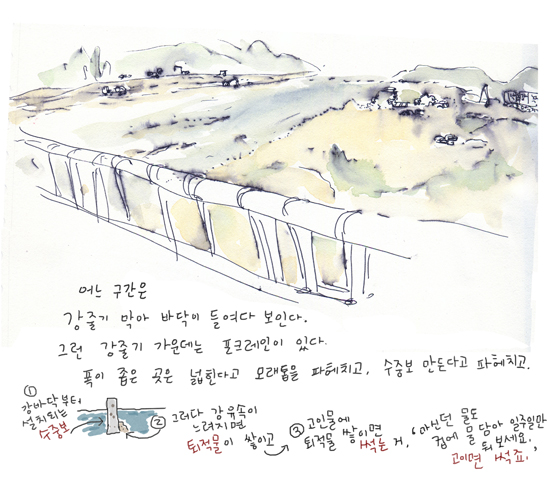 어느 구간은
강줄기 막아 바닥이 들여다 보인다.
그런 강줄기 가운데는 포크레인이 있다.
폭이 좁은 곳은 넓힌다고 모래톱을 파헤치고, 수중보 만든다고 파헤치고.
①
강바닥부터
설치되는
수중보
② 그러다 강 유속이
느려지면
퇴적물이 쌓이고
③ 고인물에
퇴적물 쌓이면
썩는 거,
'마시던 물도
컵에 물 담아 일주일만
둬 보세요.
고이면 썩죠.'